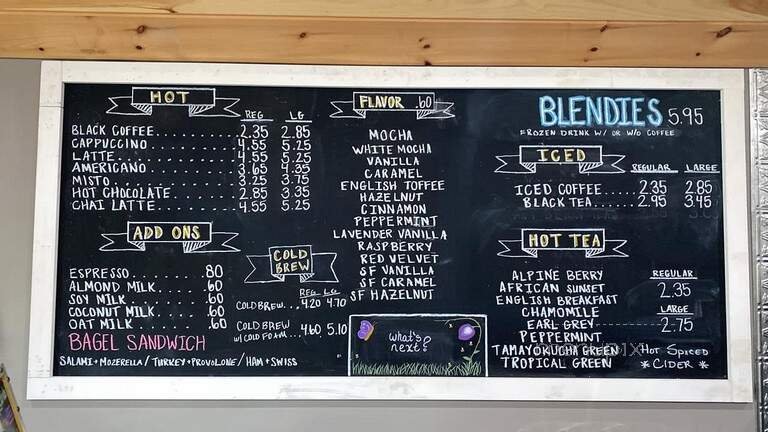 HOT
REG LG
BLACK COFFEE 2.35 2.85
CAPPUCCINO 4.55 5.25
LATTE 4.55 5.25
AMERICANO 3.65 4.35
MISTO 3.25 3.75
HOT CHOCOLATE 2.85 3.35
CHAI LATTE 4.55 5.25
ADD ONS
ESPRESSO .80
ALMOND MILK .60
SOY MILK .60
COCONUT MILK .60
OAT MILK .60
BAGEL SANDWICH
SALAMI + MOZERELLA / TURKEY + PROVOLONE / HAM + SWISS
COLD BREW
REG LG
COLD BREW 4.20 4.70
COLD BREW 4.60 5.10
W/ COLD FOAM
FLAVOR .60
MOCHA
WHITE MOCHA
VANILLA
CARAMEL
ENGLISH TOFFEE
HAZELNUT
CINNAMON
PEPPERMINT
LAVENDER VANILLA
RASPBERRY
RED VELVET
SF VANILLA
SF CARAMEL
SF HAZELNUT
what's
next?
BLENDIES 5.95
FROZEN DRINK W/ OR W/O COFFEE
ICED
REGULAR LARGE
ICED COFFEE 2.35 2.85
BLACK TEA 2.95 3.45
HOT TEA
ALPINE BERRY
AFRICAN SUNSET
ENGLISH BREAKFAST
CHAMOMILE
EARL GREY
PEPPERMINT
TAMAYOKUCHA GREEN
TROPICAL GREEN
REGULAR
2.35
LARGE
2.75
Hot Spiced
* CIDER *